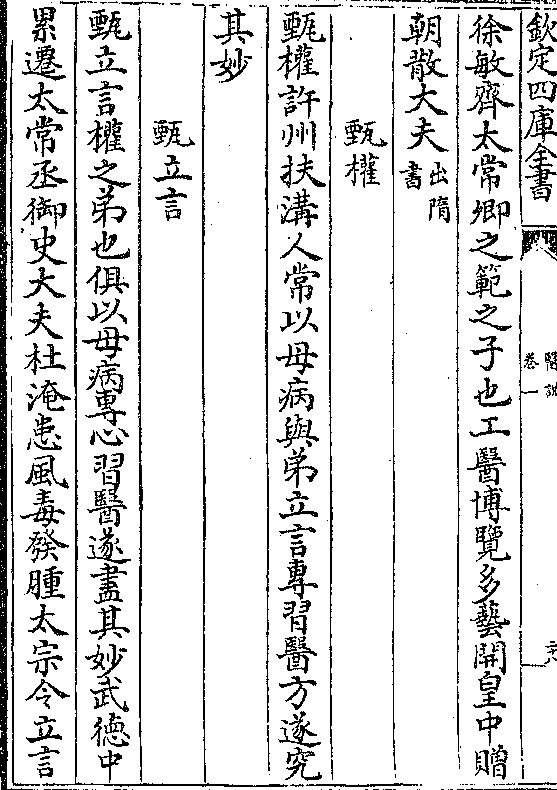 欽定四庫全書
醫説
卷一
徐敏齊太常卿之範之子也工醫博覽多藝開皇中贈
朝散大夫出隋書
甄權
甄權許州扶溝人常以母病與弟立言專習醫方遂究
其妙
甄立言
甄立言權之弟也俱以母病專心習醫遂盡其妙武德中
累遷太常丞御史大夫杜淹患風毒發腫太宗令立言